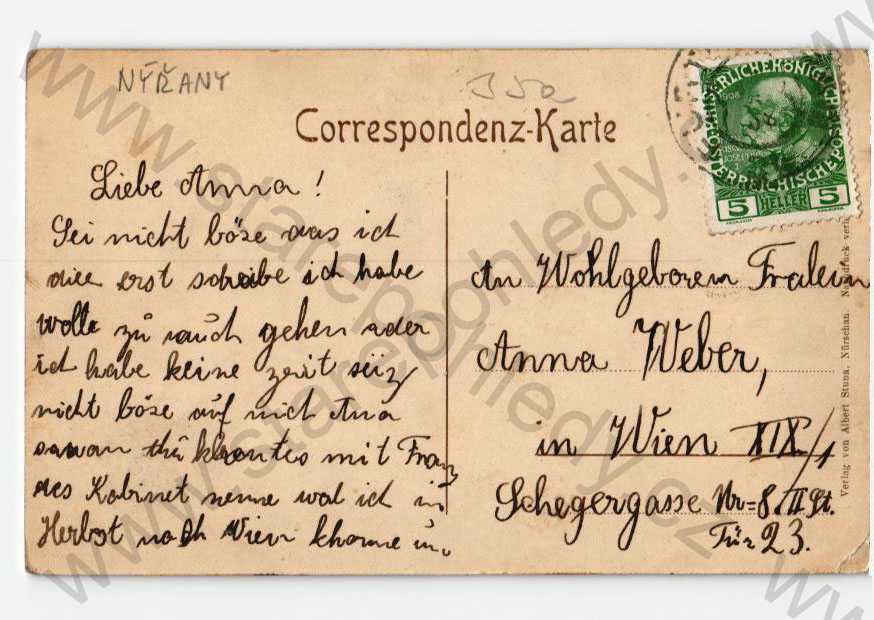 NÝŘANY
Correspondenz-Karte
KAISERLICHE KÖNIGLICHE
ÖSTERREICHISCHE POST
1908
5 HELLER 5
Liebe Anna!
Sei nicht böse das ich
dier erst schreibe ich habe
wolle zu euch gehen ader
ich habe keine zeit seiz
nicht böse auf mich Ana
thu klontes mit Franz
des Kabinet neme wal ich in
Herbst nach Wien khome un.
An Wohlgeborem Fralein
Anna Weber,
in Wien XIX/1
Schegergasse Nr=8. II St.
Tür 23.
Verlag von Albert Stuna, Nürschan. Nachdruck verb.
www.starepohledy.cz